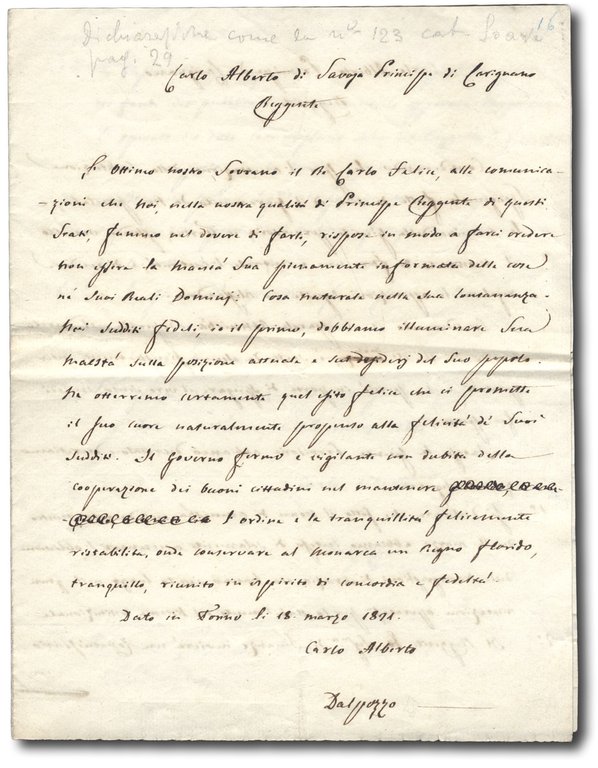 16.
dichiarazione come la n° 123 cat.
pag. 29
Carlo Alberto di Savoja Principe di Carignano
Reggente
L'Ottimo nostro Sovrano il Re Carlo Felice, alle comunica-
-zioni che Noi, nella nostra qualità di Principe Reggente di questi
Stati, fummo nel dovere di farli, rispose in modo a farci credere
non essere la maestà Sua pienamente informata delle cose
nè Suoi Reali Dominj: Cosa naturale nella sua lontananza.
Noi sudditi fedeli, io il primo, dobbiamo illuminare Sua
maestà sulla posizione attuale e sui desiderj del Suo popolo.
Ne otterremo certamente quel esito felice che ci promette
il suo cuore naturalmente propenso alla felicità de' Suoi
sudditi. Il Governo fermo e vigilante non dubita della
cooperazione dei buoni cittadini nel mantenere
l'ordine e la tranquillità felicemente
ristabilita, onde conservare al monarca un Regno florido,
tranquillo, riunito in ispirito di concordia e fedeltà.
Dato in Torino li 18 marzo 1821.
Carlo Alberto
Dalpozzo